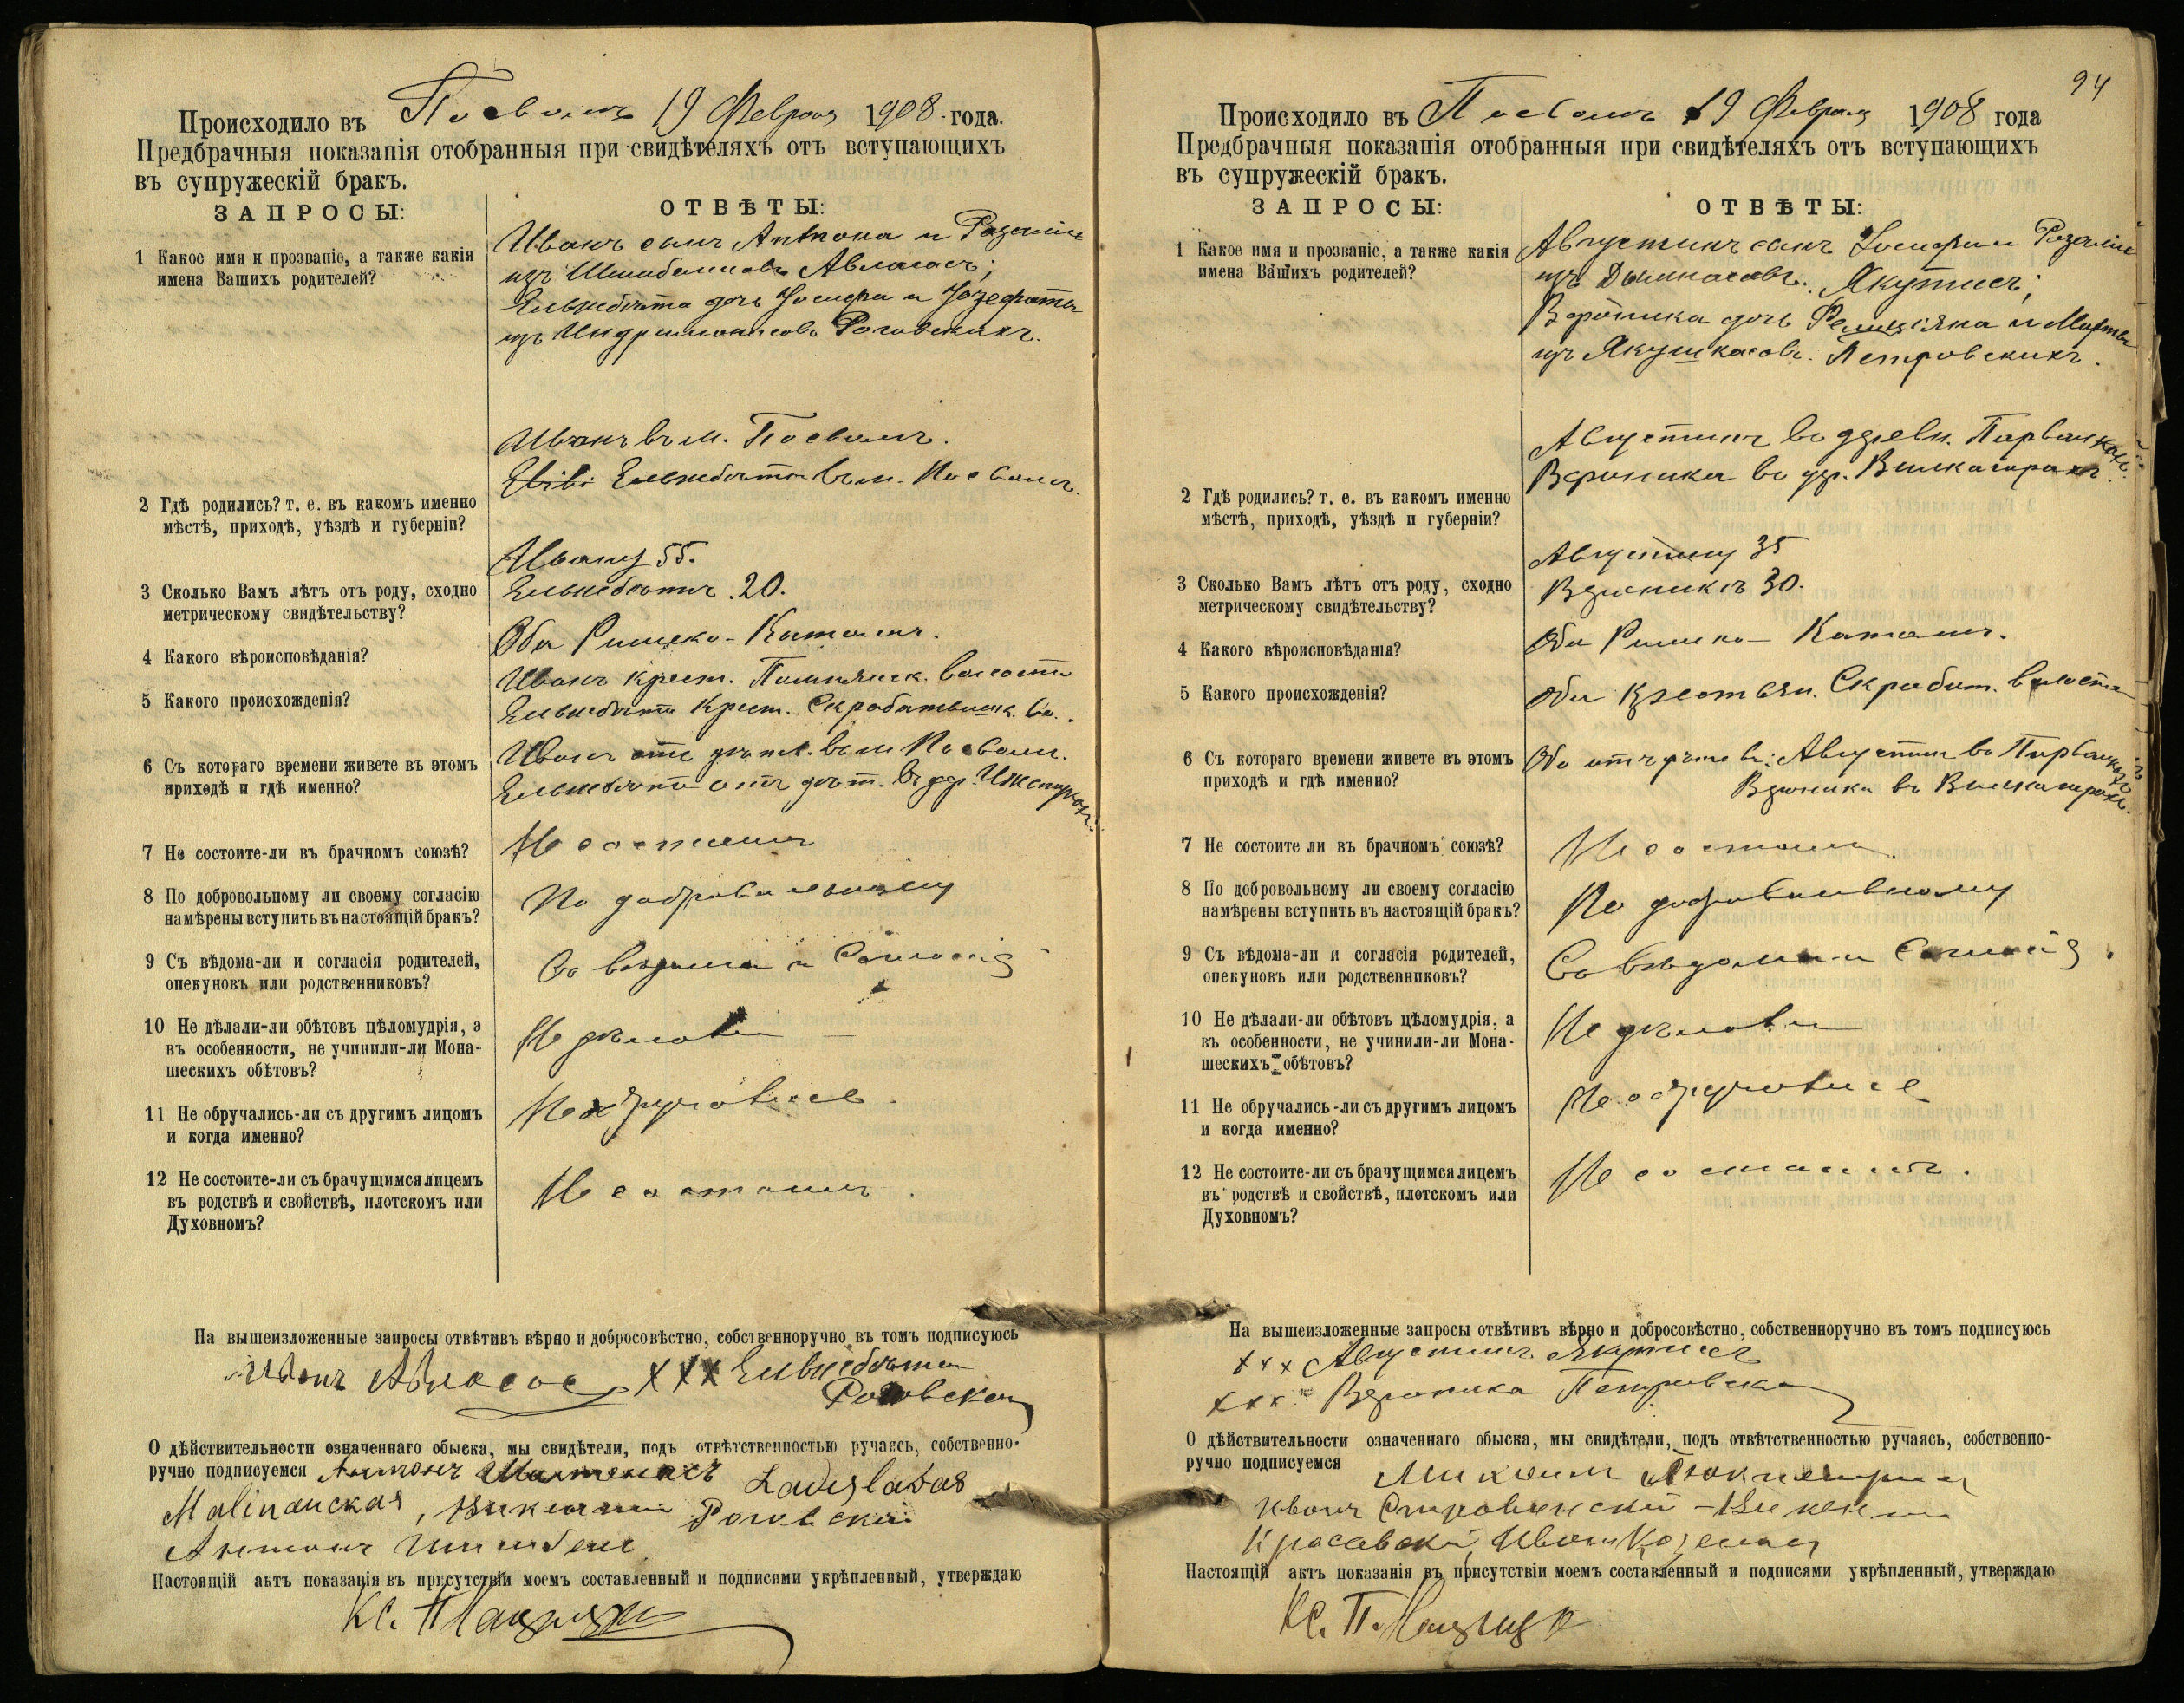 Происходило въ Посволѣ 19 Февраля 1908 года.
Предбрачныя показанія отобранныя при свидѣтеляхъ отъ вступающихъ
въ супружескій бракъ.
ЗАПРОСЫ:
ОТВѢТЫ:
1 Какое имя и прозваніе, а также какія
имена Вашихъ родителей?
Иванъ сынъ Антона и Розаліи
изъ Авласасъ;
Ельжбѣта дочь Іосифа и Іозефаты
изъ Индрилюнасовъ Роговскихъ.
2 Гдѣ родились? т. е. въ какомъ именно
мѣстѣ, приходѣ, уѣздѣ и губерніи?
Иванъ въ м. Посволѣ.
Ельжбѣта въ м. Посволѣ.
3 Сколько Вамъ лѣтъ отъ роду, сходно
метрическому свидѣтельству?
Ивану 55.
Ельжбѣтѣ 20.
4 Какого вѣроисповѣданія?
Оба Римско-Катол.
5 Какого происхожденія?
Иванъ крест. Помпянск. волости
Ельжбѣта крест. Скробитышк. во.
6 Съ котораго времени живете въ этомъ
приходѣ и гдѣ именно?
Иванъ отъ дѣт. въ м. Посволѣ.
Ельжбѣта отъ дѣт. въ дер.
7 Не состоите-ли въ брачномъ союзѣ?
Не состоимъ
8 По добровольному ли своему согласію
намѣрены вступить въ настоящій бракъ?
По добровольному
9 Съ вѣдома-ли и согласія родителей,
опекуновъ или родственниковъ?
Съ вѣдома и согласія
10 Не дѣлали-ли обѣтовъ цѣломудрія, а
въ особенности, не учинили-ли Мона-
шескихъ обѣтовъ?
Не дѣлали
11 Не обручались-ли съ другимъ лицомъ
и когда именно?
Не обручались.
12 Не состоите-ли съ брачущимся лицемъ
въ родствѣ и свойствѣ, плотскомъ или
Духовномъ?
Не состоимъ.
На вышеизложенные запросы отвѣтивъ вѣрно и добросовѣстно, собственноручно въ томъ подписуюсь
Иванъ Авласас xxx Ельжбѣта
Роговская
О дѣйствительности означеннаго обыска, мы свидѣтели, подъ отвѣтственностью ручаясь, собственно-
ручно подписуемся Антонъ Ladislavas
Роговскій
Антонъ
Настоящій актъ показанія въ присутствіи моемъ составленный и подписями укрѣпленный, утверждаю
Кс. П.
94
Происходило въ Посволѣ 19 Февраля 1908 года
Предбрачныя показанія отобранныя при свидѣтеляхъ отъ вступающихъ
въ супружескій бракъ.
ЗАПРОСЫ:
ОТВѢТЫ:
1 Какое имя и прозваніе, а также какія
имена Вашихъ родителей?
Августинъ сынъ Іосифа и Розаліи
изъ Якутисъ;
Вероника дочь Фелиціяна и Марты
изъ Якушкасовъ Петровскихъ.
2 Гдѣ родились? т. е. въ какомъ именно
мѣстѣ, приходѣ, уѣздѣ и губерніи?
Августинъ въ деревн.
Вероника въ дер.
3 Сколько Вамъ лѣтъ отъ роду, сходно
метрическому свидѣтельству?
Августину 35
Вероникѣ 30.
4 Какого вѣроисповѣданія?
Оба Римско-Катол.
5 Какого происхожденія?
Оба крестьян. Скробит. волости
6 Съ котораго времени живете въ этомъ
приходѣ и гдѣ именно?
Оба отъ Августинъ въ
Вероника въ
7 Не состоите ли въ брачномъ союзѣ?
Не состоимъ
8 По добровольному ли своему согласію
намѣрены вступить въ настоящій бракъ?
По добровольному
9 Съ вѣдома-ли и согласія родителей,
опекуновъ или родственниковъ?
Съ вѣдома и согласія.
10 Не дѣлали-ли обѣтовъ цѣломудрія, а
въ особенности, не учинили-ли Мона-
шескихъ обѣтовъ?
Не дѣлали
11 Не обручались-ли съ другимъ лицомъ
и когда именно?
Не обручались
12 Не состоите-ли съ брачущимся лицемъ
въ родствѣ и свойствѣ, плотскомъ или
Духовномъ?
Не состоимъ.
На вышеизложенные запросы отвѣтивъ вѣрно и добросовѣстно, собственноручно въ томъ подписуюсь
xxx Августинъ Якутисъ
xxx Вероника Петровская
О дѣйствительности означеннаго обыска, мы свидѣтели, подъ отвѣтственностью ручаясь, собственно-
ручно подписуемся
Иванъ
Настоящій актъ показанія въ присутствіи моемъ составленный и подписями укрѣпленный, утверждаю
Кс. П.